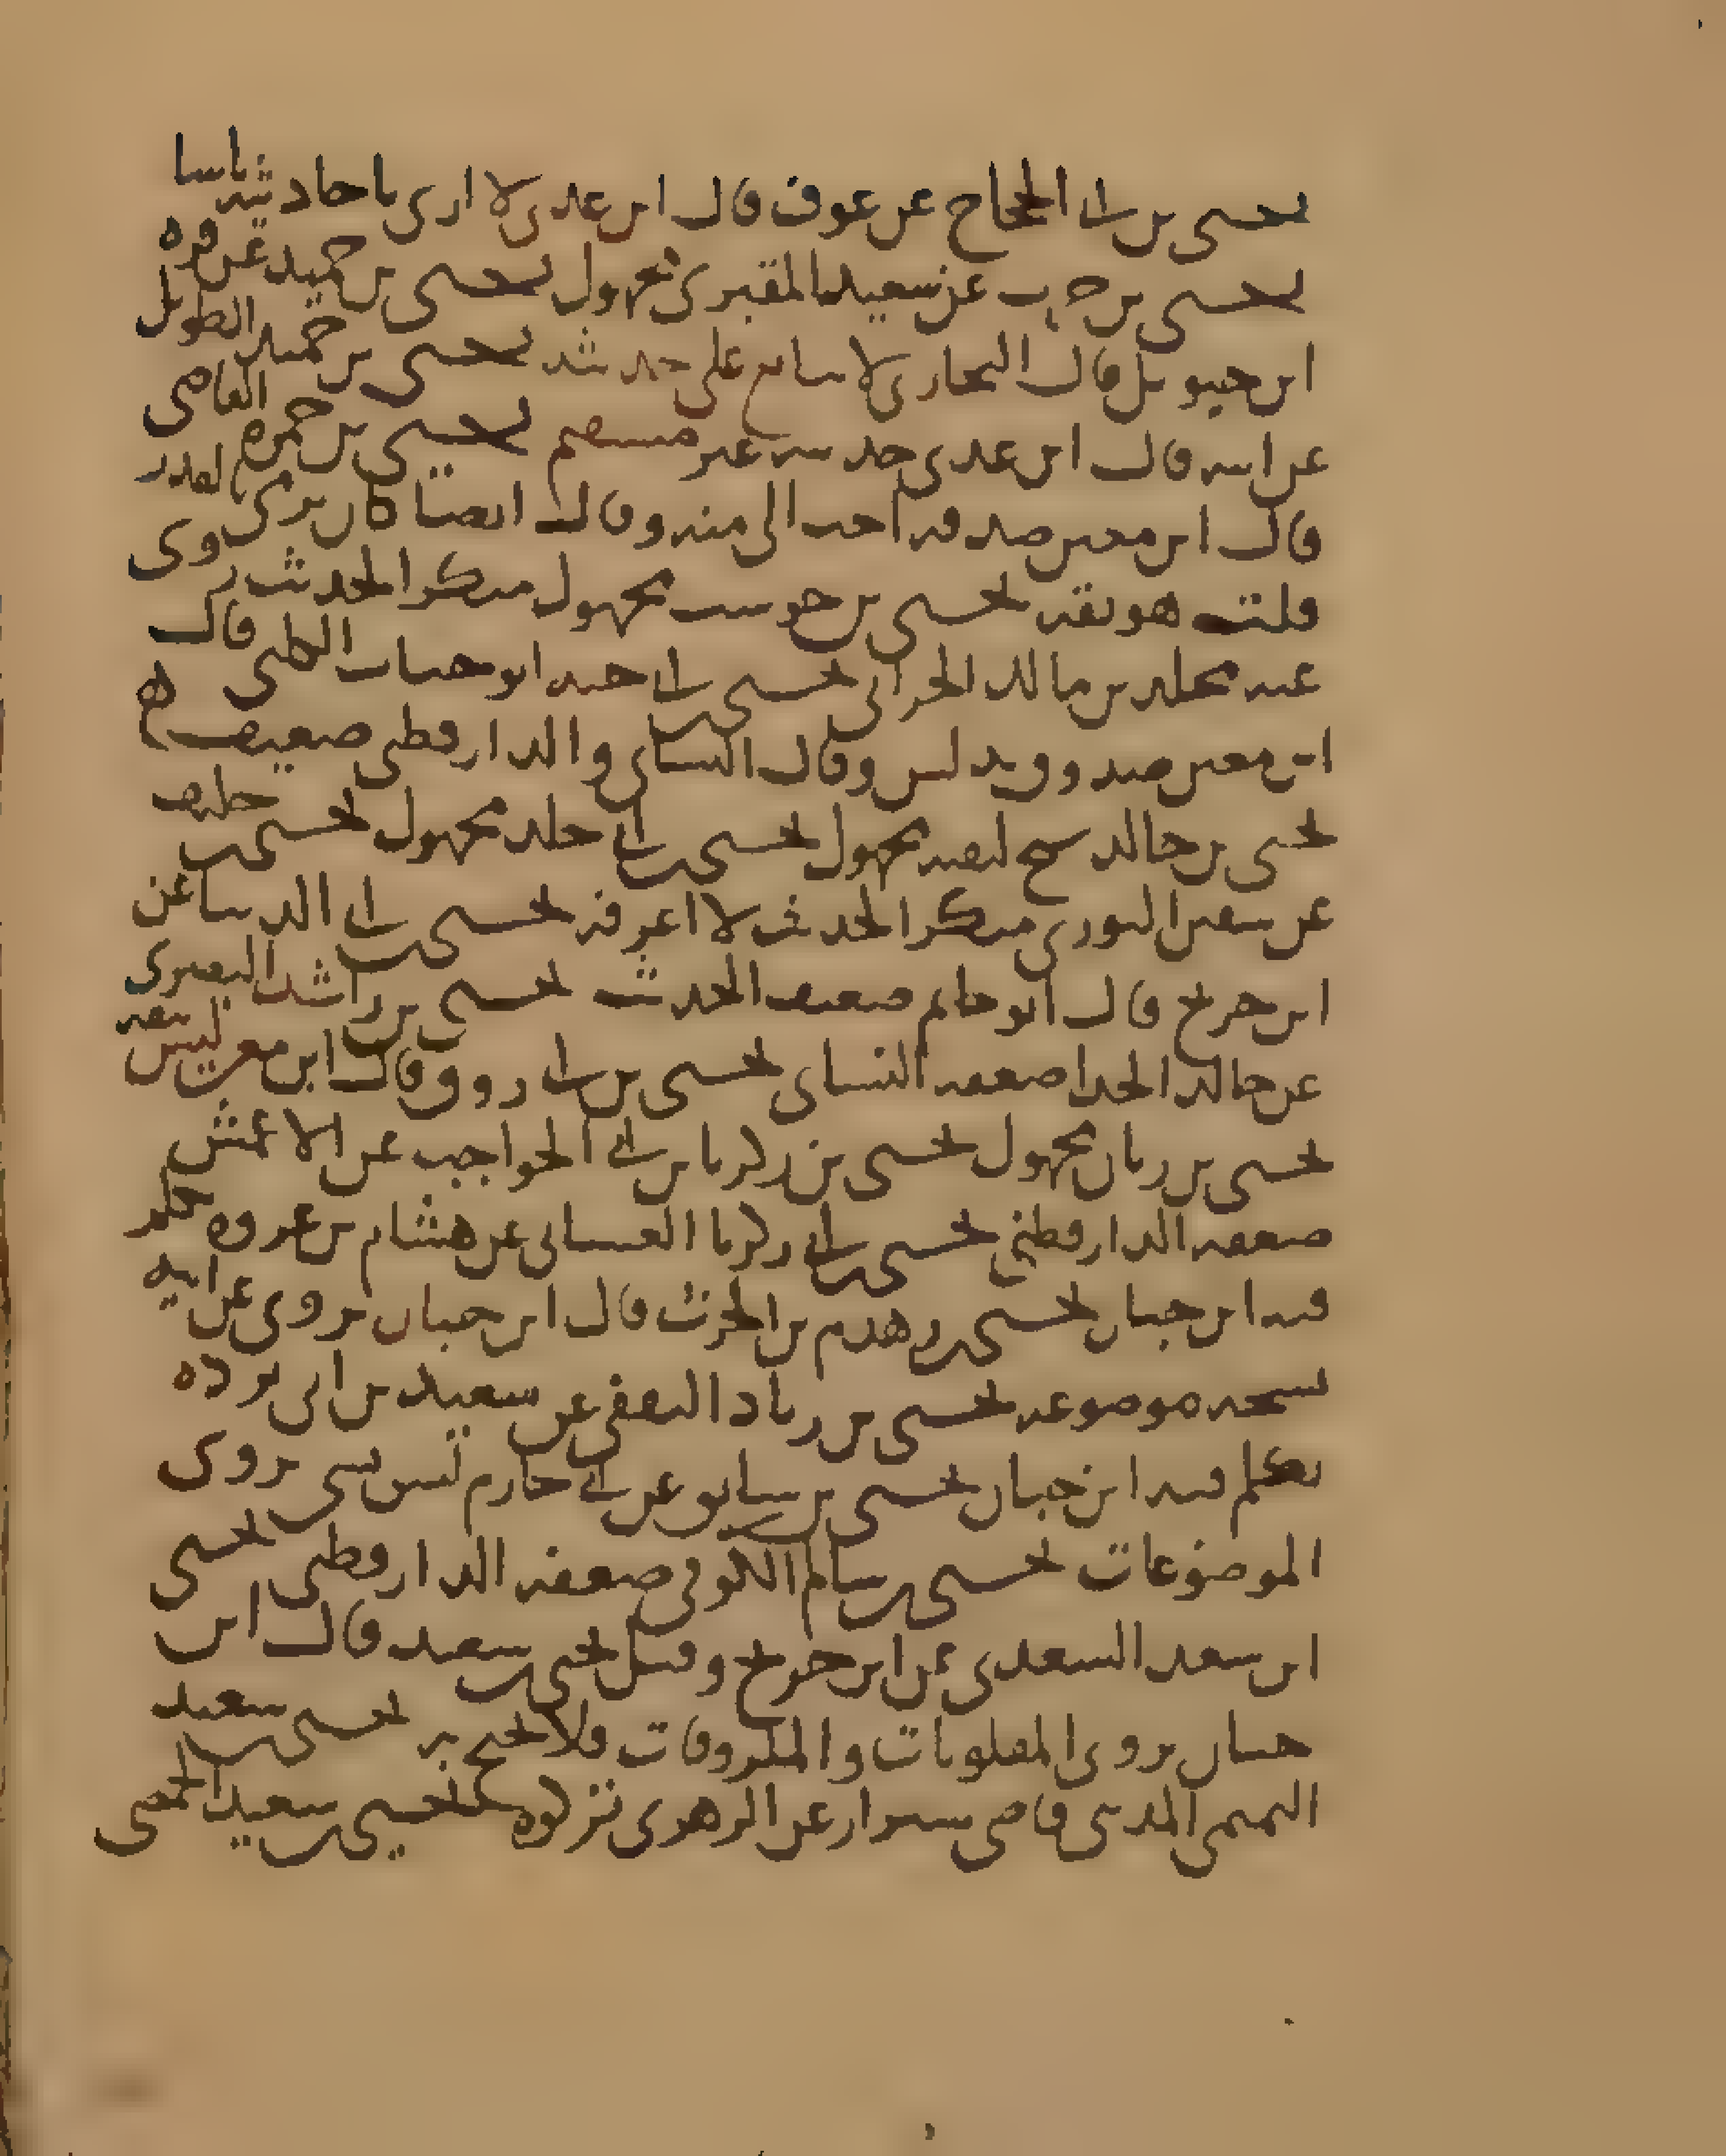 يحيى بن أبي الحجاج عن عوف قال ابن عدي لا أرى بأحاديثه بأسا
يحيى بن حرب عن سعيد المقبري مجهول يحيى بن حميد عن قرة
ابن حيويل قال البخاري لا يتابع على حديثه يحيى بن حميد الطويل
عن أبيه قال ابن عدي حديثه غير مستقيم يحيى بن حمزة القاضي
قال ابن معين صدقة أحب إلي منه وقال أيضا كان يرمى بالقدر
قلت هو ثقة يحيى بن حوشب مجهول منكر الحديث روى
عنه مخلد بن مالك الحراني يحيى بن أبي حية أبو جناب الكلبي قال
ابن معين صدوق يدلس وقال النسائي والدارقطني ضعيف
يحيى بن خالد شيخ لبقية مجهول يحيى بن أبي خلد مجهول يحيى بن خليف
عن سفين الثوري منكر الحديث لا أعرفه يحيى بن أبي الدنيا عن
ابن جريج قال أبو حاتم ضعيف الحديث يحيى بن راشد البصري
عن خالد الحذا ضعفه النسائي يحيى بن أبي روق قال ابن معين ليس بثقة
يحيى بن ربان مجهول يحيى بن زكريا بن أبي الحواجب عن الأعمش
ضعفه الدارقطني يحيى بن أبي زكريا الغساني عن هشام بن عروة تكلم
فيه ابن حبان يحيى بن زهدم بن الحرث قال ابن حبان يروي عن أبيه
نسخة موضوعة يحيى بن زياد الثقفي عن سعيد بن أبي بردة
تكلم فيه ابن حبان يحيى بن سابق عن أبي حازم ليس بشي يروي
الموضوعات يحيى بن سالم الكوفي ضعفه الدارقطني يحيى
ابن سعد السعدي عن ابن جريج وقيل يحيى بن سعيد قال ابن
حبان يروي المقلوبات والملزوقات فلا يحتج به يحيى بن سعيد
التميمي المدني قاضي شيراز عن الزهري تركوه يحيى بن سعيد الحمصي